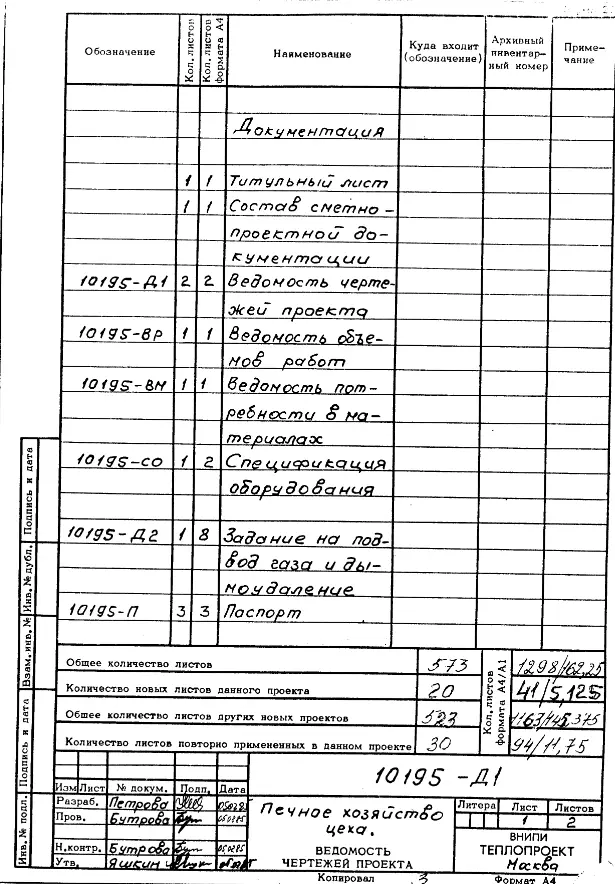 Обозначение Кол. листов Кол. листов формата А4 Наименование Куда входит (обозначение) Архивный инвентарный номер Примечание
Документация
1 1 Титульный лист
1 1 Состав сметно-
проектной до-
кументации
10195-Д1 2 2 Ведомость черте-
жей проекта
10195-ВР 1 1 Ведомость объе-
мов работ
10195-ВМ 1 1 Ведомость пот-
ребности в ма-
териалах
10195-СО 1 2 Спецификация
оборудования
10195-Д2 1 8 Задание на под-
вод газа и ды-
моудаление
10195-П 3 3 Паспорт
Общее количество листов 573
Количество новых листов данного проекта 20
Общее количество листов других новых проектов 523
Количество листов повторно примененных в данном проекте 30
Кол. листов формата А4/А1
1298/162,25
41/5,125
1163/145,375
94/11,75
10195-Д1
Изм Лист № докум. Подп. Дата
Разраб. Петрова
Пров. Бутрова
Н.контр. Бутрова
Утв. Яшкин
Печное хозяйство
цеха.
ВЕДОМОСТЬ
ЧЕРТЕЖЕЙ ПРОЕКТА
Литера Лист Листов
1 2
ВНИПИ
ТЕПЛОПРОЕКТ
Москва
Копировал 3 Формат А4
Подпись и дата
Инв. № дубл.
Взам. инв. №
Подпись и дата
Инв. № подл.